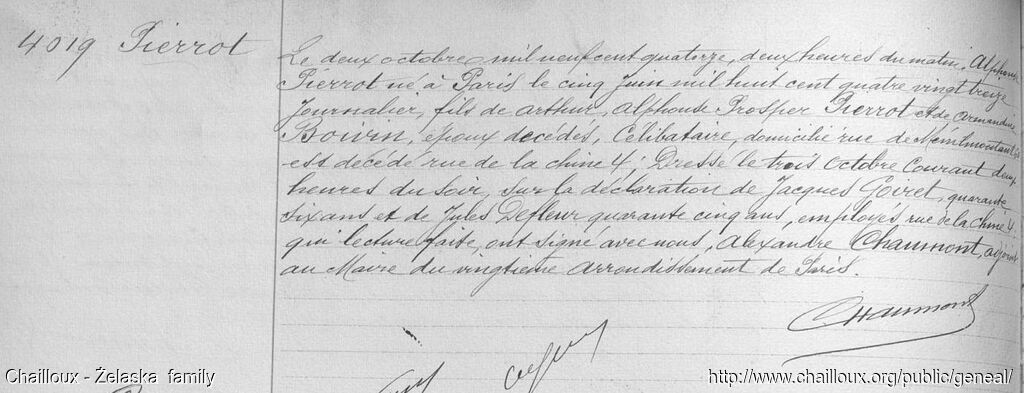 4019 Pierrot
Le deux octobre mil neuf cent quatorze, deux heures du matin, Alphonse
Pierrot né à Paris le cinq juin mil huit cent quatre vingt treize
Journalier, fils de Arthur, Alphonse Prosper Pierrot et de Armandine
Boivin, époux décédés, Célibataire, domicilié rue de Ménilmontant
est décédé rue de la Chine 4; Dressé le trois Octobre Courant deux
heures du soir, sur la déclaration de Jacques Goret, quarante
six ans et de Jules Defleur quarante cinq ans, employés rue de la Chine 4
qui lecture faite, ont signé avec nous, Alexandre Chaumont, adjoint
au Maire du vingtième arrondissement de Paris.
Chaumont
Chailloux - Żelaska family
http://www.chailloux.org/public/geneal/